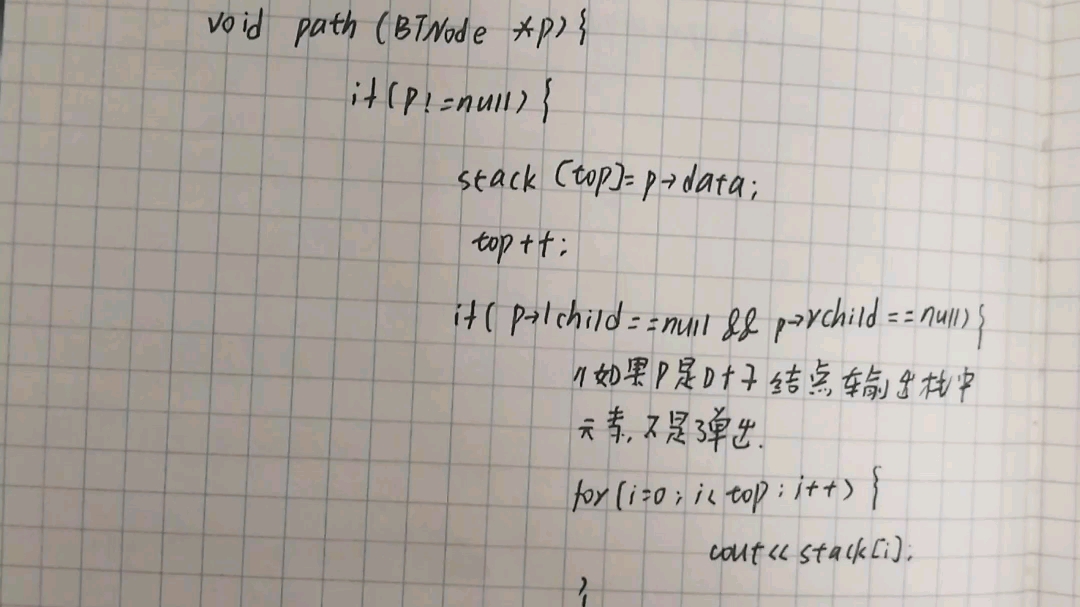 void path (BTNode *p){
if(p!=null){
stack [top]=p→data;
top++;
if( p→lchild==null && p→rchild==null){
//如果p是叶子结点输出栈中
元素,不是弹出.
for(i=0;i<top;i++){
cout<<stack[i];
}